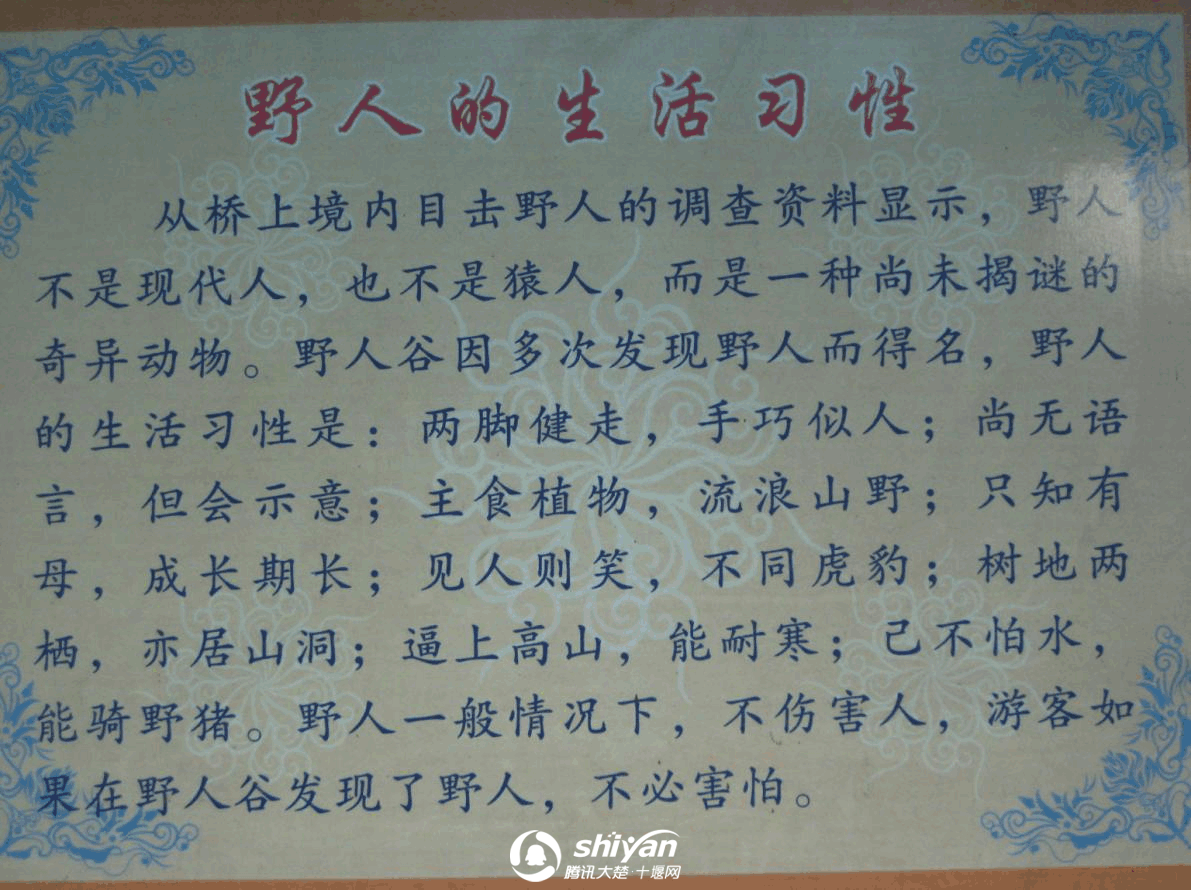 野人的生活习性
从桥上境内目击野人的调查资料显示，野人
不是现代人，也不是猿人，而是一种尚未揭谜的
奇异动物。野人谷因多次发现野人而得名，野人
的生活习性是：两脚健走，手巧似人；尚无语
言，但会示意；主食植物，流浪山野；只知有
母，成长期长；见人则笑，不同虎豹；树地两
栖，亦居山洞；逼上高山，能耐寒；己不怕水，
能骑野猪。野人一般情况下，不伤害人，游客如
果在野人谷发现了野人，不必害怕。
shiyan
腾讯大楚·十堰网